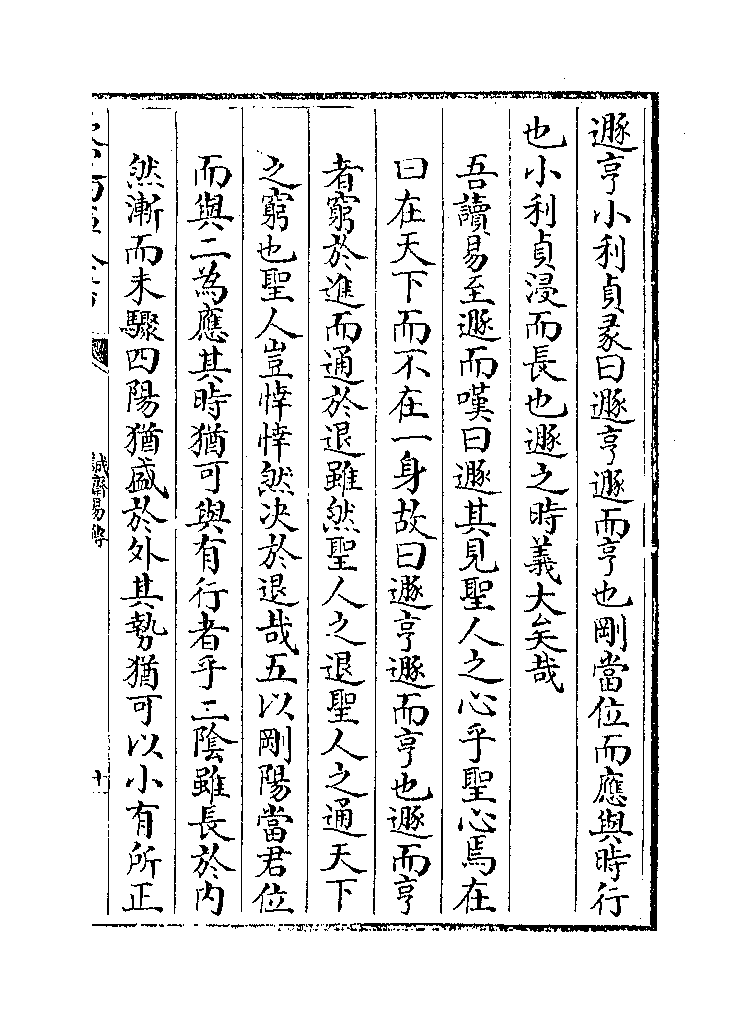 遯亨小利貞彖曰遯亨遯而亨也剛當位而應與時行
也小利貞浸而長也遯之時義大矣哉
吾讀易至遯而嘆曰遯其見聖人之心乎聖心焉在
曰在天下而不在一身故曰遯亨遯而亨也遯而亨
者窮於進而通於退雖然聖人之退聖人之通天下
之窮也聖人豈悻悻然决於退哉五以剛陽當君位
而與二為應其時猶可與有行者乎二陰雖長於内
然漸而未驟四陽猶盛於外其勢猶可以小有所正
誠齋易傳